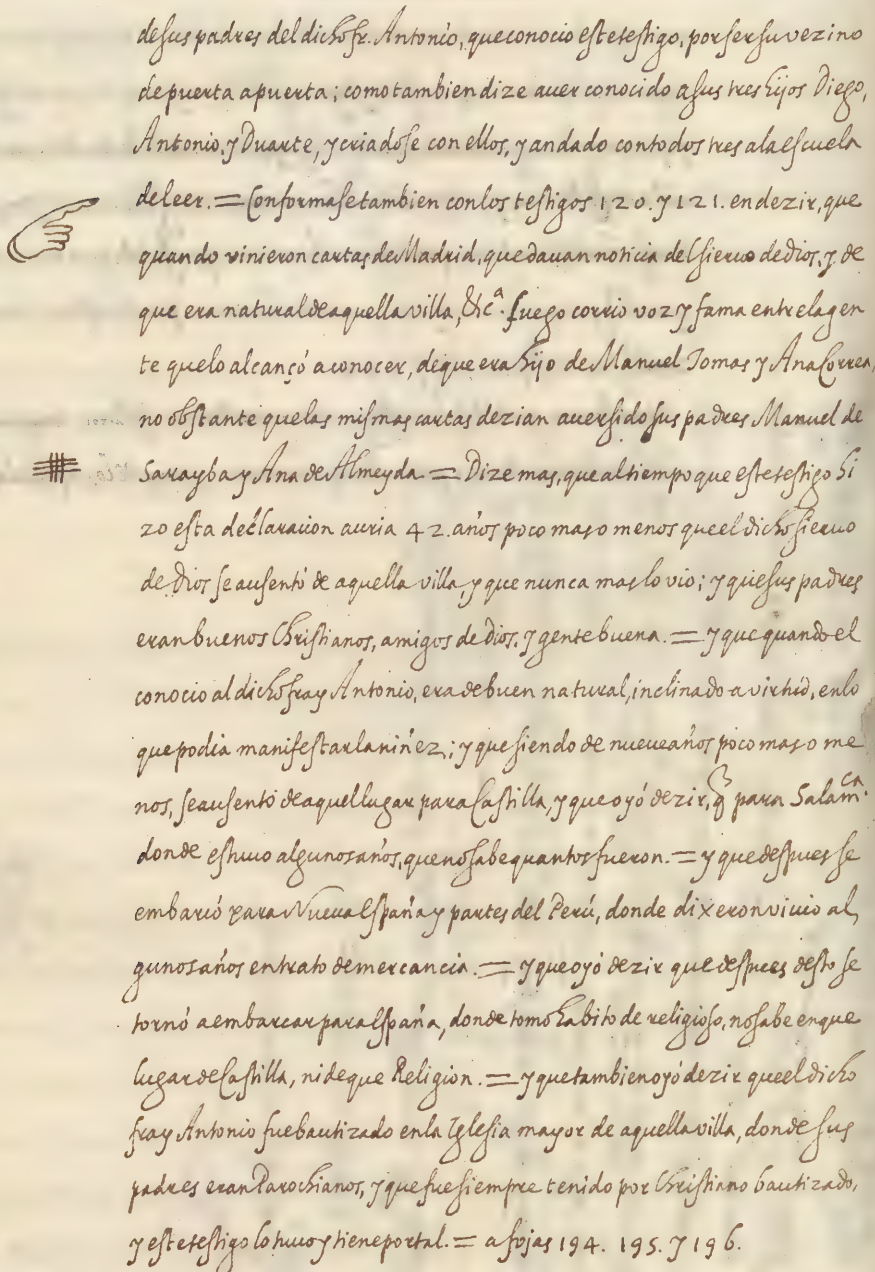 de sus padres del dicho fr. Antonio, que conocio este testigo, por ser su vezino
de puerta a puerta; como tambien dize auer conocido a sus tres hijos Diego,
Antonio, y Duarte, y criadose con ellos, y andado con todos tres a la escuela
de leer. = Conformase tambien con los testigos 120. y 121. en dezir, que
quando vinieron cartas de Madrid, que dauan noticia del sieruo de dios, y de
que era natural de aquella villa, &cª. luego corrio voz y fama entre la gen
te que lo alcançó a conocer, de que era hijo de Manuel Tomas y Ana Correa,
no obstante que las mismas cartas dezian auer sido sus padres Manuel de
Sarayba y Ana de Almeyda = Dize mas, que al tiempo que este testigo hi
zo esta declaracion auria 42. años poco mas o menos que el dicho sieruo
de Dios se ausentó de aquella villa, y que nunca mas lo vio; y que sus padres
eran buenos Christianos, amigos de Dios, y gente buena. = y que quando el
conocio al dicho fray Antonio, era de buen natural, inclinado a virtud, en lo
que podia manifestar la niñez; y que siendo de nueue años poco mas o me
nos, se ausentó de aquel lugar para Castilla, y que oyó dezir, q̃ para Salamca.
donde estuuo algunos años, que no sabe quantos fueron. = y que despues se
embarcó para Nueua España y partes del Perú, donde dixeron viuio al,
gunos años en trato de mercancia. = y que oyó dezir que despues desto se
tornó a embarcar para España, donde tomo habito de religioso, no sabe en que
lugar de Castilla, ni de que Religion. = y que tambien oyó dezir que el dicho
fray Antonio fue bautizado en la Iglesia mayor de aquella villa, donde sus
padres eran Parochianos, y que fue siempre tenido por Christiano bautizado,
y este testigo lo tuuo y tiene por tal. = a fojas 194. 195. y 196.